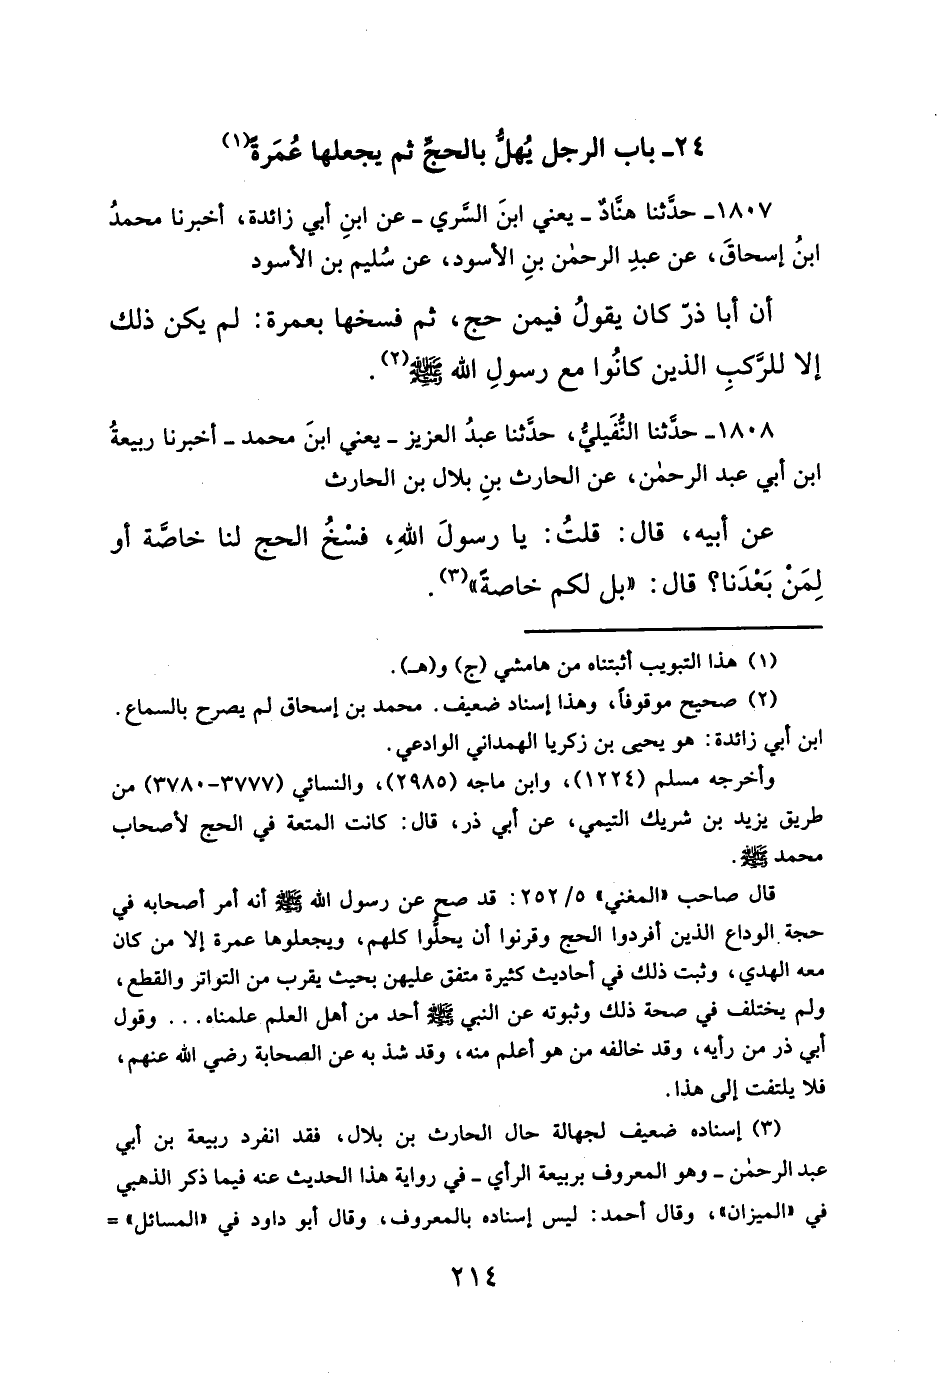 ٢٤ـ باب الرجل يُهلُّ بالحجِّ ثم يجعلها عُمَرةً(١)
١٨٠٧ـ حدَّثنا هنَّادٌ ـ يعني ابنَ السَّري ـ عن ابنِ أبي زائدة، أخبرنا محمدُ
ابنُ إسحاقَ، عن عبدِ الرحمٰن بنِ الأسود، عن سُليم بن الأسود
أن أبا ذرّ كان يقولُ فيمن حج، ثم فسخها بعمرة: لم يكن ذلك
إلا للرَّكبِ الذين كانُوا مع رسولِ الله ﷺ(٢).
١٨٠٨ـ حدَّثنا النُّفَيليُّ، حدَّثنا عبدُ العزيز ـ يعني ابنَ محمد ـ أخبرنا ربيعةُ
ابن أبي عبد الرحمٰن، عن الحارث بنِ بلال بن الحارث
عن أبيه، قال: قلتُ: يا رسولَ اللهِ، فسْخُ الحج لنا خاصَّة أو
لِمَنْ بَعْدَنا؟ قال: «بل لكم خاصةً»(٣).
(١) هذا التبويب أثبتناه من هامشي (ج) و(هـ).
(٢) صحيح موقوفاً، وهذا إسناد ضعيف. محمد بن إسحاق لم يصرح بالسماع.
ابن أبي زائدة: هو يحيى بن زكريا الهمداني الوادعي.
وأخرجه مسلم (١٢٢٤)، وابن ماجه (٢٩٨٥)، والنسائي (٣٧٧٧-٣٧٨٠) من
طريق يزيد بن شريك التيمي، عن أبي ذر، قال: كانت المتعة في الحج لأصحاب
محمد ﷺ.
قال صاحب «المغني» ٥/ ٢٥٢: قد صح عن رسول الله ﷺ أنه أمر أصحابه في
حجة الوداع الذين أفردوا الحج وقرنوا أن يحلُّوا كلهم، ويجعلوها عمرة إلا من كان
معه الهدي، وثبت ذلك في أحاديث كثيرة متفق عليهن بحيث يقرب من التواتر والقطع،
ولم يختلف في صحة ذلك وثبوته عن النبي ﷺ أحد من أهل العلم علمناه... وقول
أبي ذر من رأيه، وقد خالفه من هو أعلم منه، وقد شذ به عن الصحابة رضي الله عنهم،
فلا يلتفت إلى هذا.
(٣) إسناده ضعيف لجهالة حال الحارث بن بلال، فقد انفرد ربيعة بن أبي
عبد الرحمٰن ـ وهو المعروف بربيعة الرأي ـ في رواية هذا الحديث عنه فيما ذكر الذهبي
في «الميزان»، وقال أحمد: ليس إسناده بالمعروف، وقال أبو داود في «المسائل» =
٢١٤